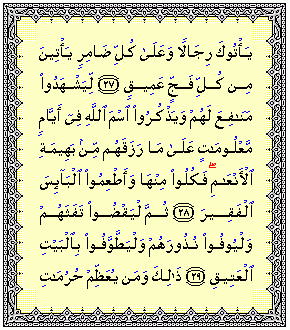 يَأۡتُوكَ رِجَالٗا وَعَلَىٰ كُلِّ ضَامِرٖ يَأۡتِينَ
مِن كُلِّ فَجٍّ عَمِيقٖ ٢٧ لِّيَشۡهَدُواْ
مَنَٰفِعَ لَهُمۡ وَيَذۡكُرُواْ ٱسۡمَ ٱللَّهِ فِيٓ أَيَّامٖ
مَّعۡلُومَٰتٍ عَلَىٰ مَا رَزَقَهُم مِّنۢ بَهِيمَةِ
ٱلۡأَنۡعَٰمِۖ فَكُلُواْ مِنۡهَا وَأَطۡعِمُواْ ٱلۡبَآئِسَ
ٱلۡفَقِيرَ ٢٨ ثُمَّ لۡيَقۡضُواْ تَفَثَهُمۡ
وَلۡيُوفُواْ نُذُورَهُمۡ وَلۡيَطَّوَّفُواْ بِٱلۡبَيۡتِ
ٱلۡعَتِيقِ ٢٩ ذَٰلِكَ وَمَن يُعَظِّمۡ حُرُمَٰتِ